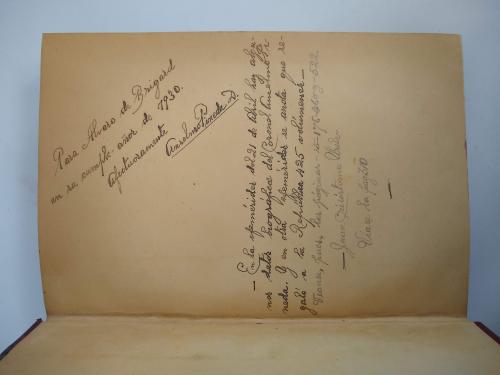 Para Alvaro de Brigard
en su cumple años de
1930.
Afectuosamente
Anselmo Pineda
— En la efemérides del 21 de Abril hay algu-
nos datos biográficos del Coronel Anselmo Pi-
neda. Y en otra efemérides se anota que re-
galó a la República 425 volúmenes —
Véanse, pues, las páginas